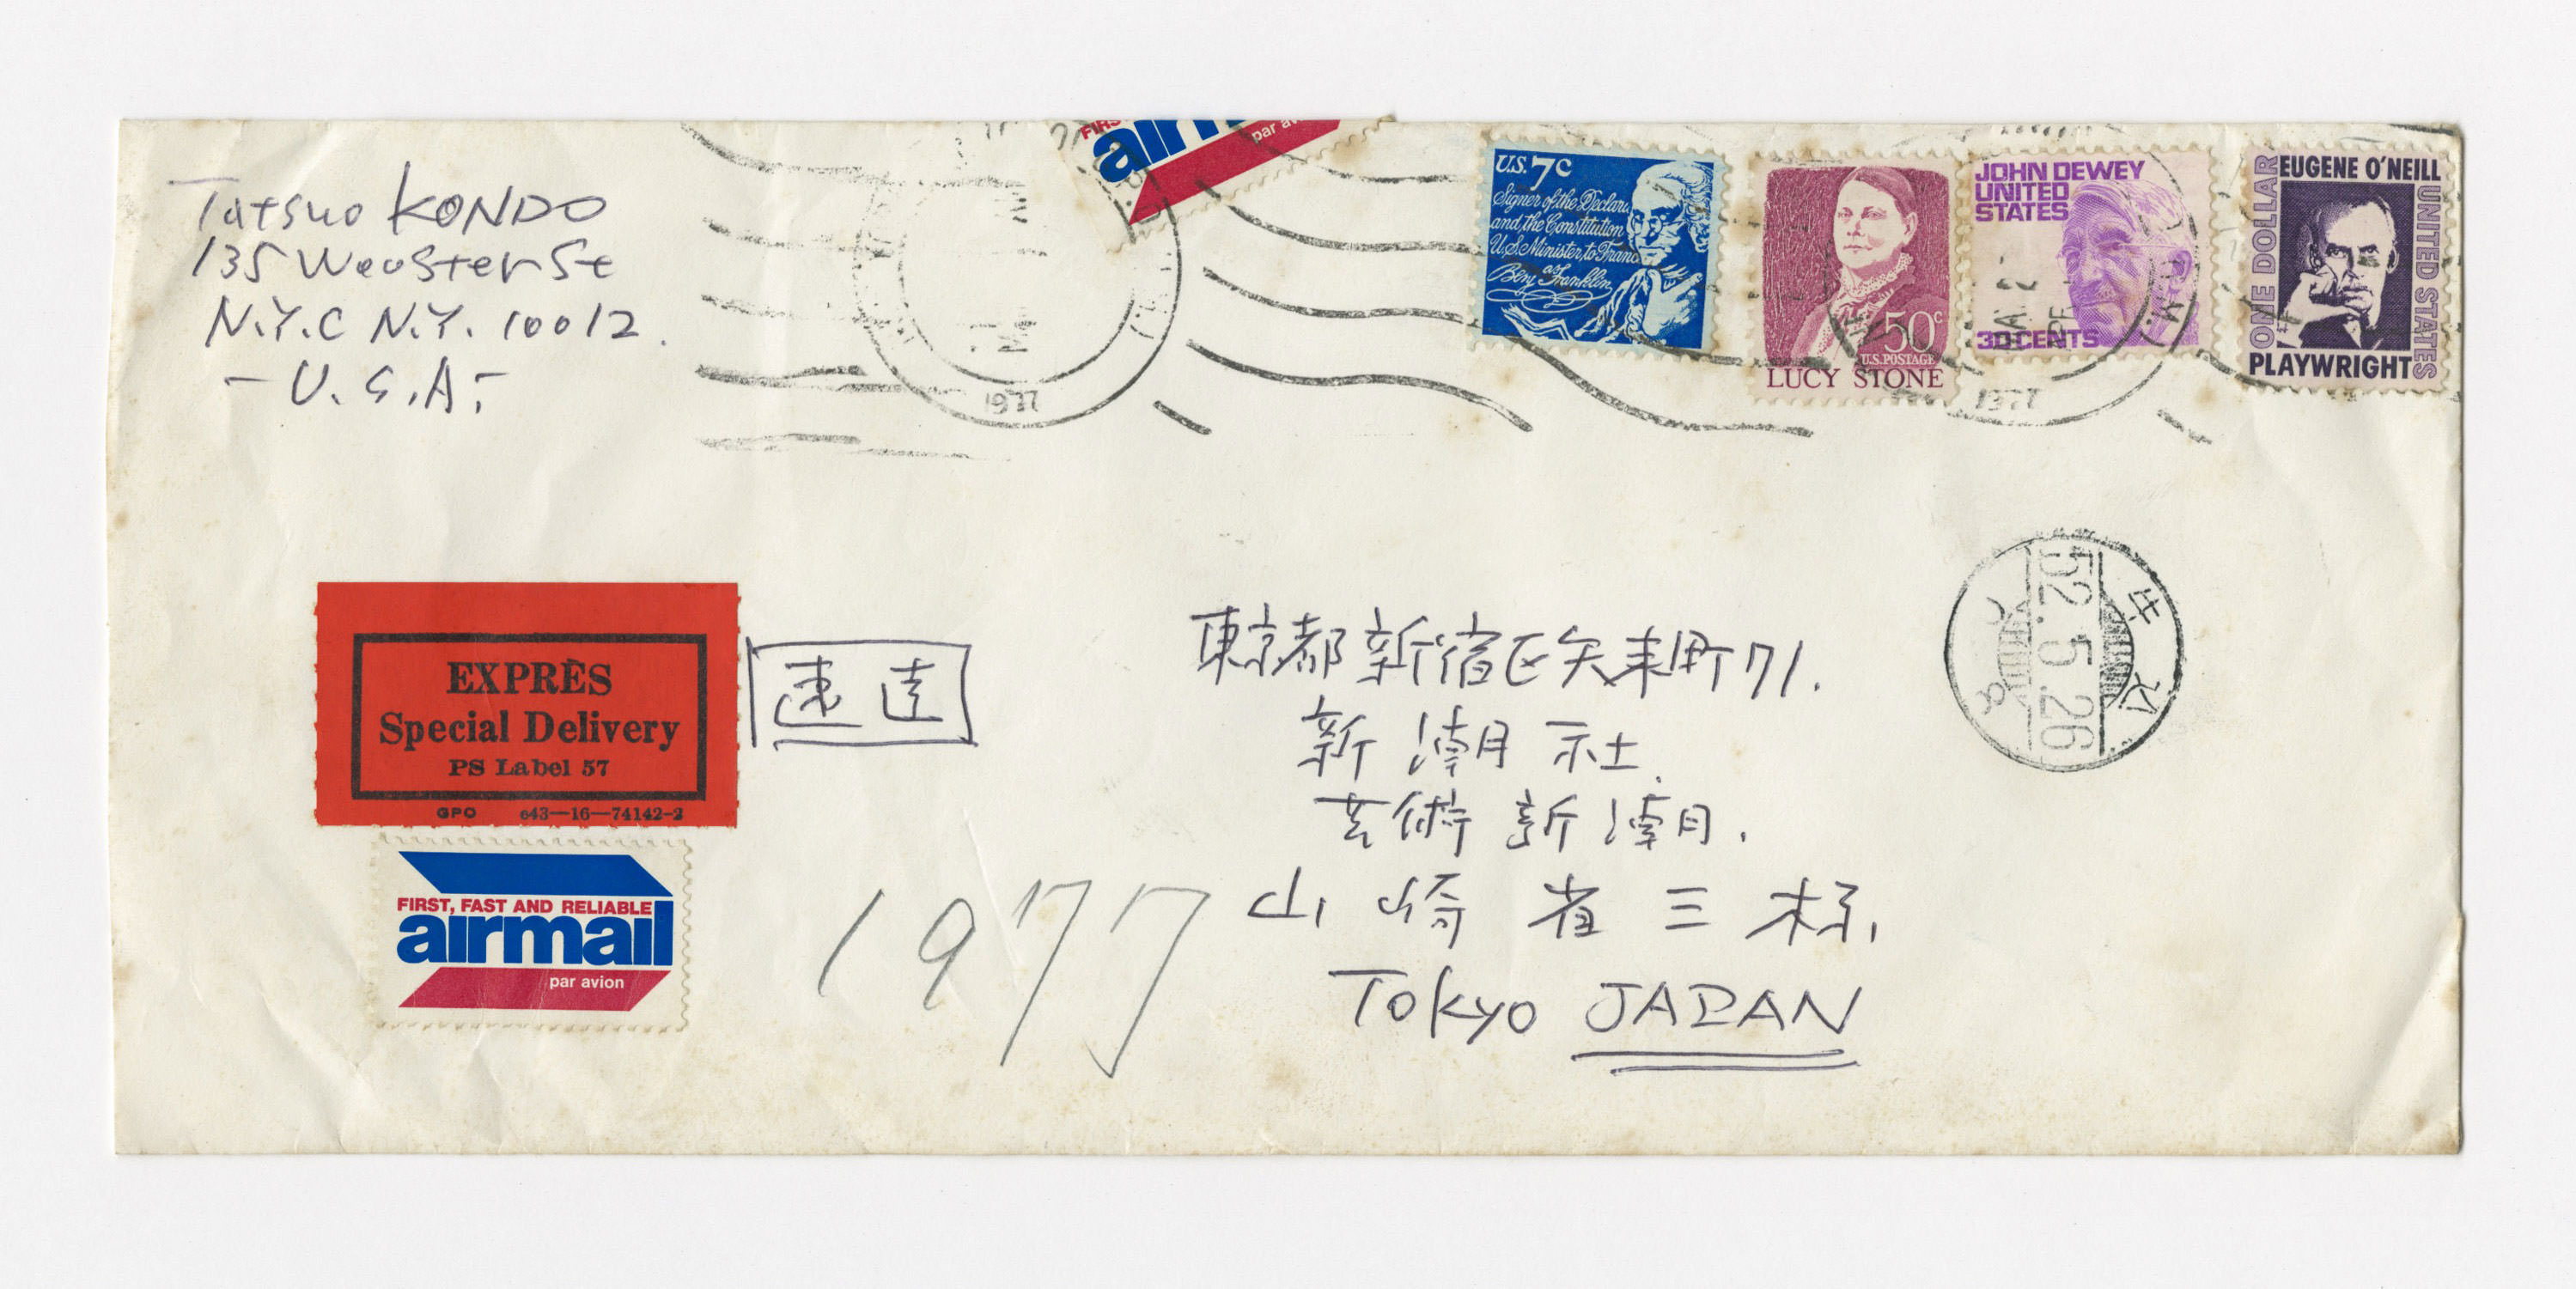 Tatsuo KONDO
135 Wooster St
N.Y.C N.Y. 10012.
- U.S.A. -
airm
par av
1977
U.S. 7c
Signer of the Declara
and the Constitution
U.S. Minister to Franc
as
Benj Franklin
50c
U.S. POSTAGE
LUCY STONE
JOHN DEWEY
UNITED
STATES
30 CENTS
1977
EUGENE O'NEILL
ONE DOLLAR
UNITED STATES
PLAYWRIGHT
牛込
52.5.26
EXPRÈS
Special Delivery
PS Label 57
GPO c43—16—74142-2
速達
FIRST, FAST AND RELIABLE
airmail
par avion
1977
東京都新宿区矢来町71.
新潮社.
芸術新潮.
山崎省三様.
Tokyo JAPAN